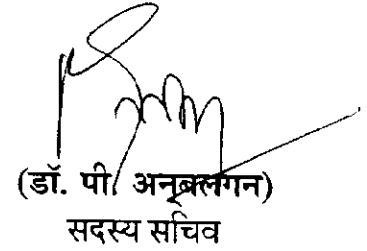 (डॉ. पी. अनबलगन)
सदस्य सचिव